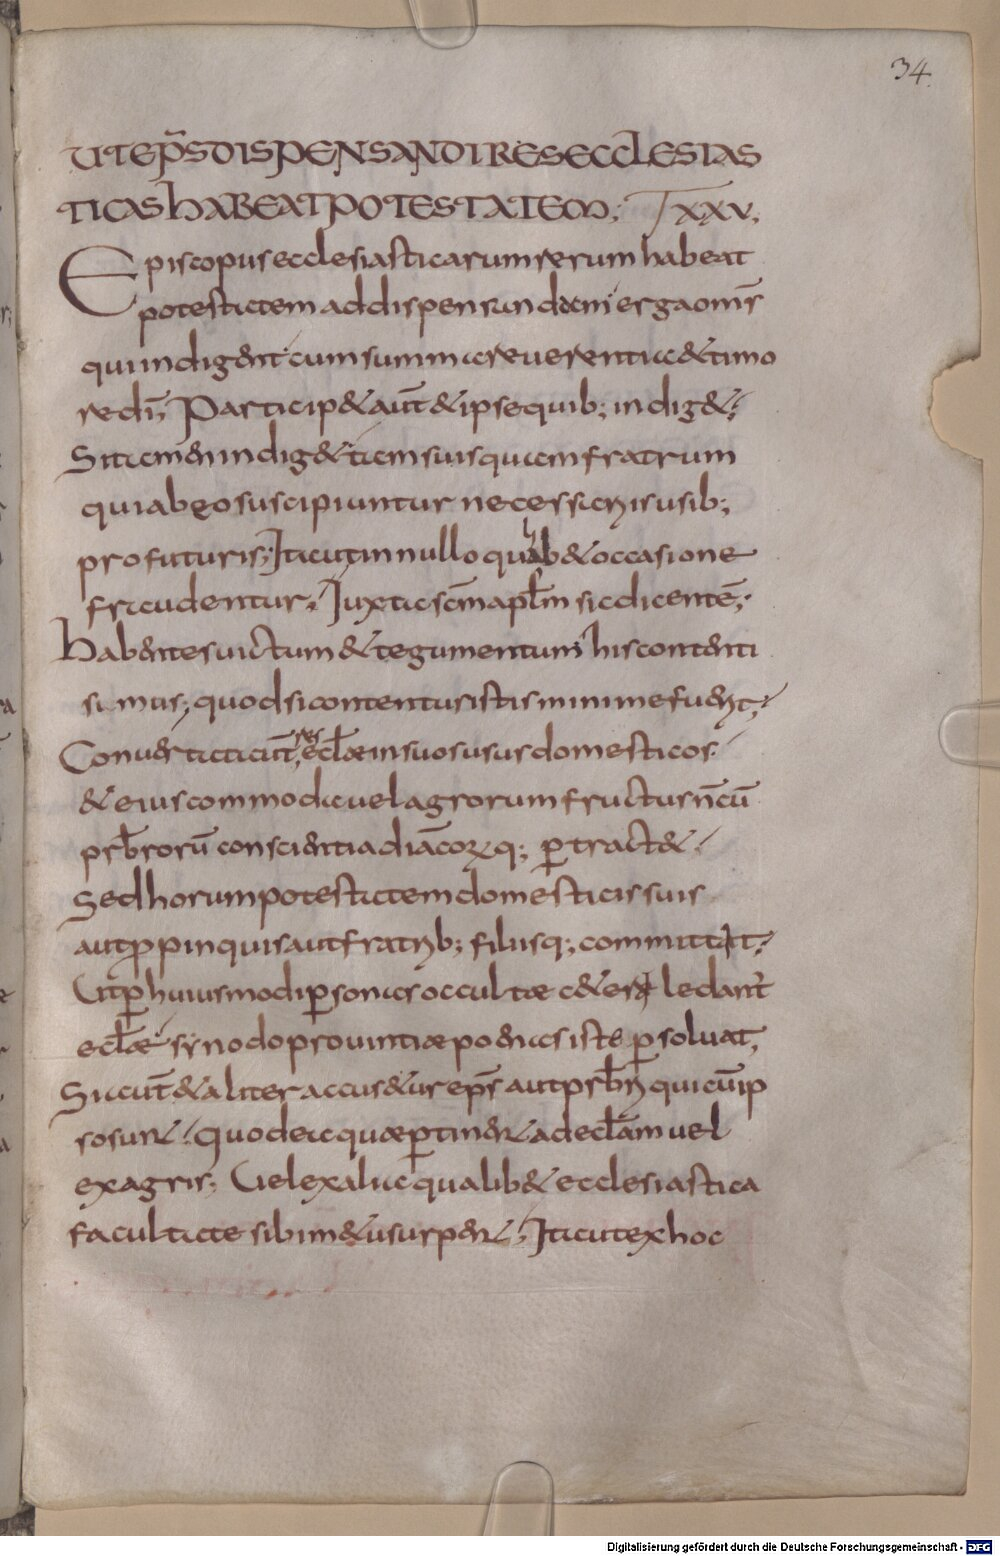 34.
UT EP̄S DISPENSANDI RES ECCLESIAS
TICAS HABEAT POTESTATEM; T XXV;
Episcopus ecclesiasticarum rerum habeat
potestatem ad dispensandum erga om̄s
qui indigent cum summa reuerentia & timo
re dī; Particip& aūt & ipse quib; indig&;
Si tamen indig& tam suis quam fratrum
qui ab eo suscipiuntur necessariis usib;
profuturis; Ita ut in nullo qualib& occasione
fraudentur; Iuxta sc̄m apl̄m sic dicentē;
Habentes uictum & tegumentum his contenti
simus; quod si contentus istis minime fuerit;
Conuertat aūt res ecl̄æ in suos usus domesticos
& eius commoda uel agrorum fructus n̄ cū
prb̄rorū conscientia diāconorumq; ptract&
Sed horum potestatem domesticis suis
aut ppinquis aut fratrib; filiisq; committat;
Ut p huiusmodi psonas occultæ c&eræ ledant̄
ecl̄æ synodo prouintiæ poenas iste psoluat;
Si aūt & aliter accus&ur ep̄s aut prb̄ri qui cū ip
so sunt quod ea quæ ptinent ad ecl̄am uel
ex agris; Uel ex alia qualib& ecclesiastica
facultate sibim& usurpent; Ita ut ex hoc
Digitalisierung gefördert durch die Deutsche Forschungsgemeinschaft - DFG